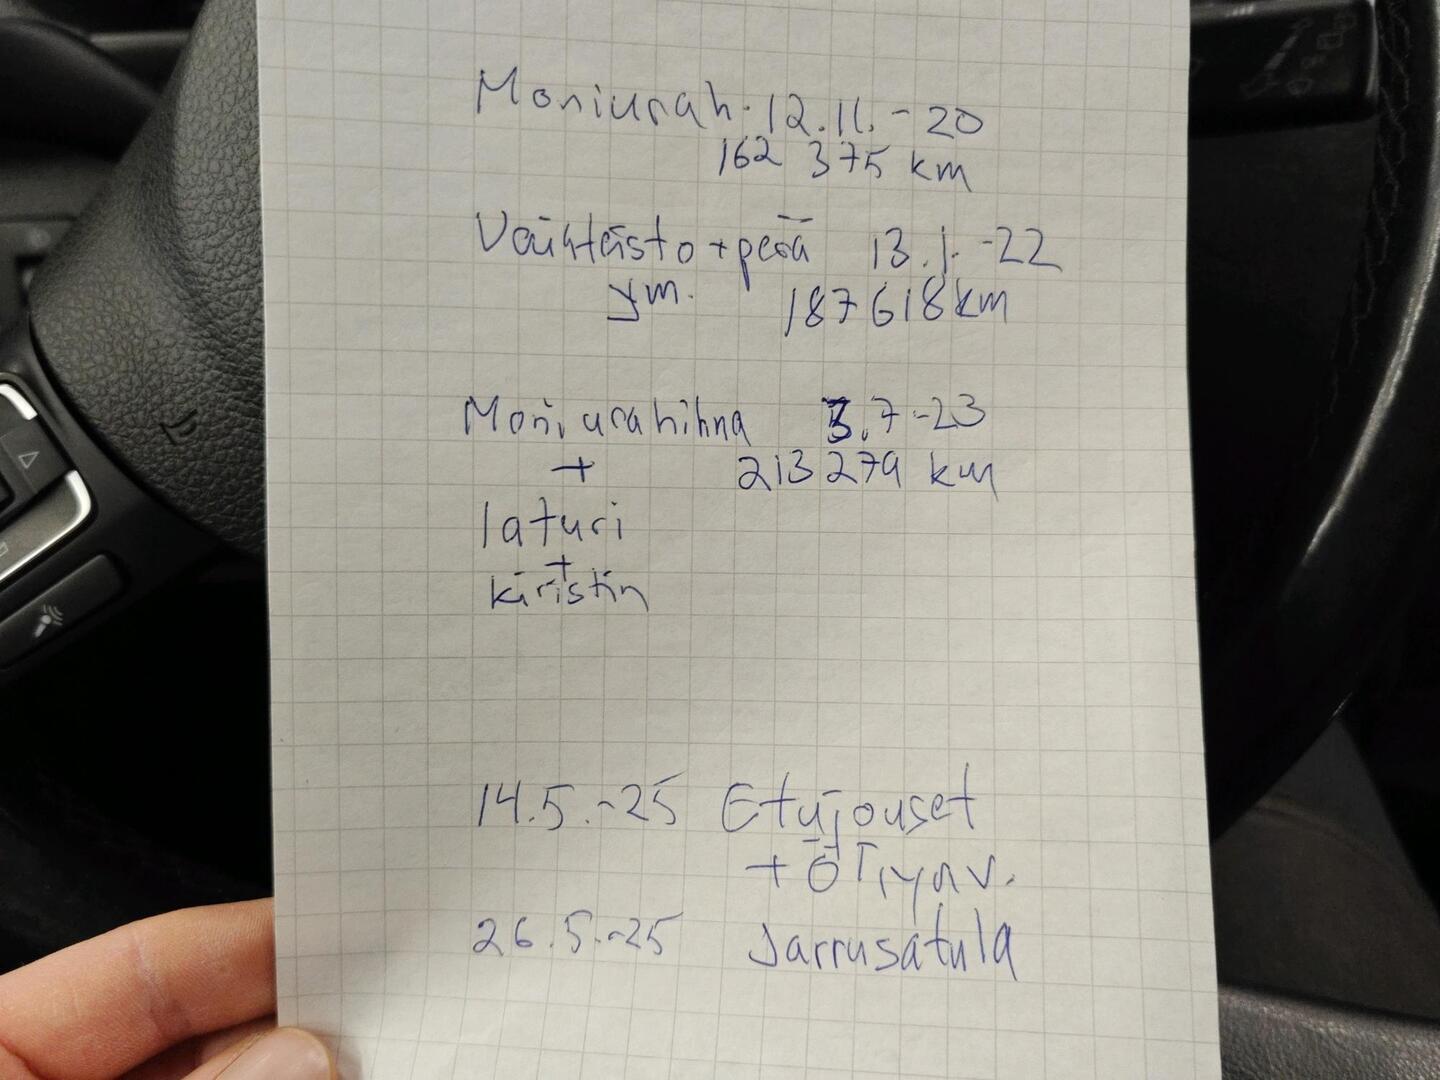 Moniurah. 12.11.-20
162 375 km
Vaihteisto + perä 13.1.-22
ym. 187 618 km
Moniurahihna 3.7-23
+ 213 279 km
laturi
+
kiristin
14.5.-25 Etujouset
+ Öljynv.
26.5.-25 Jarrusatula